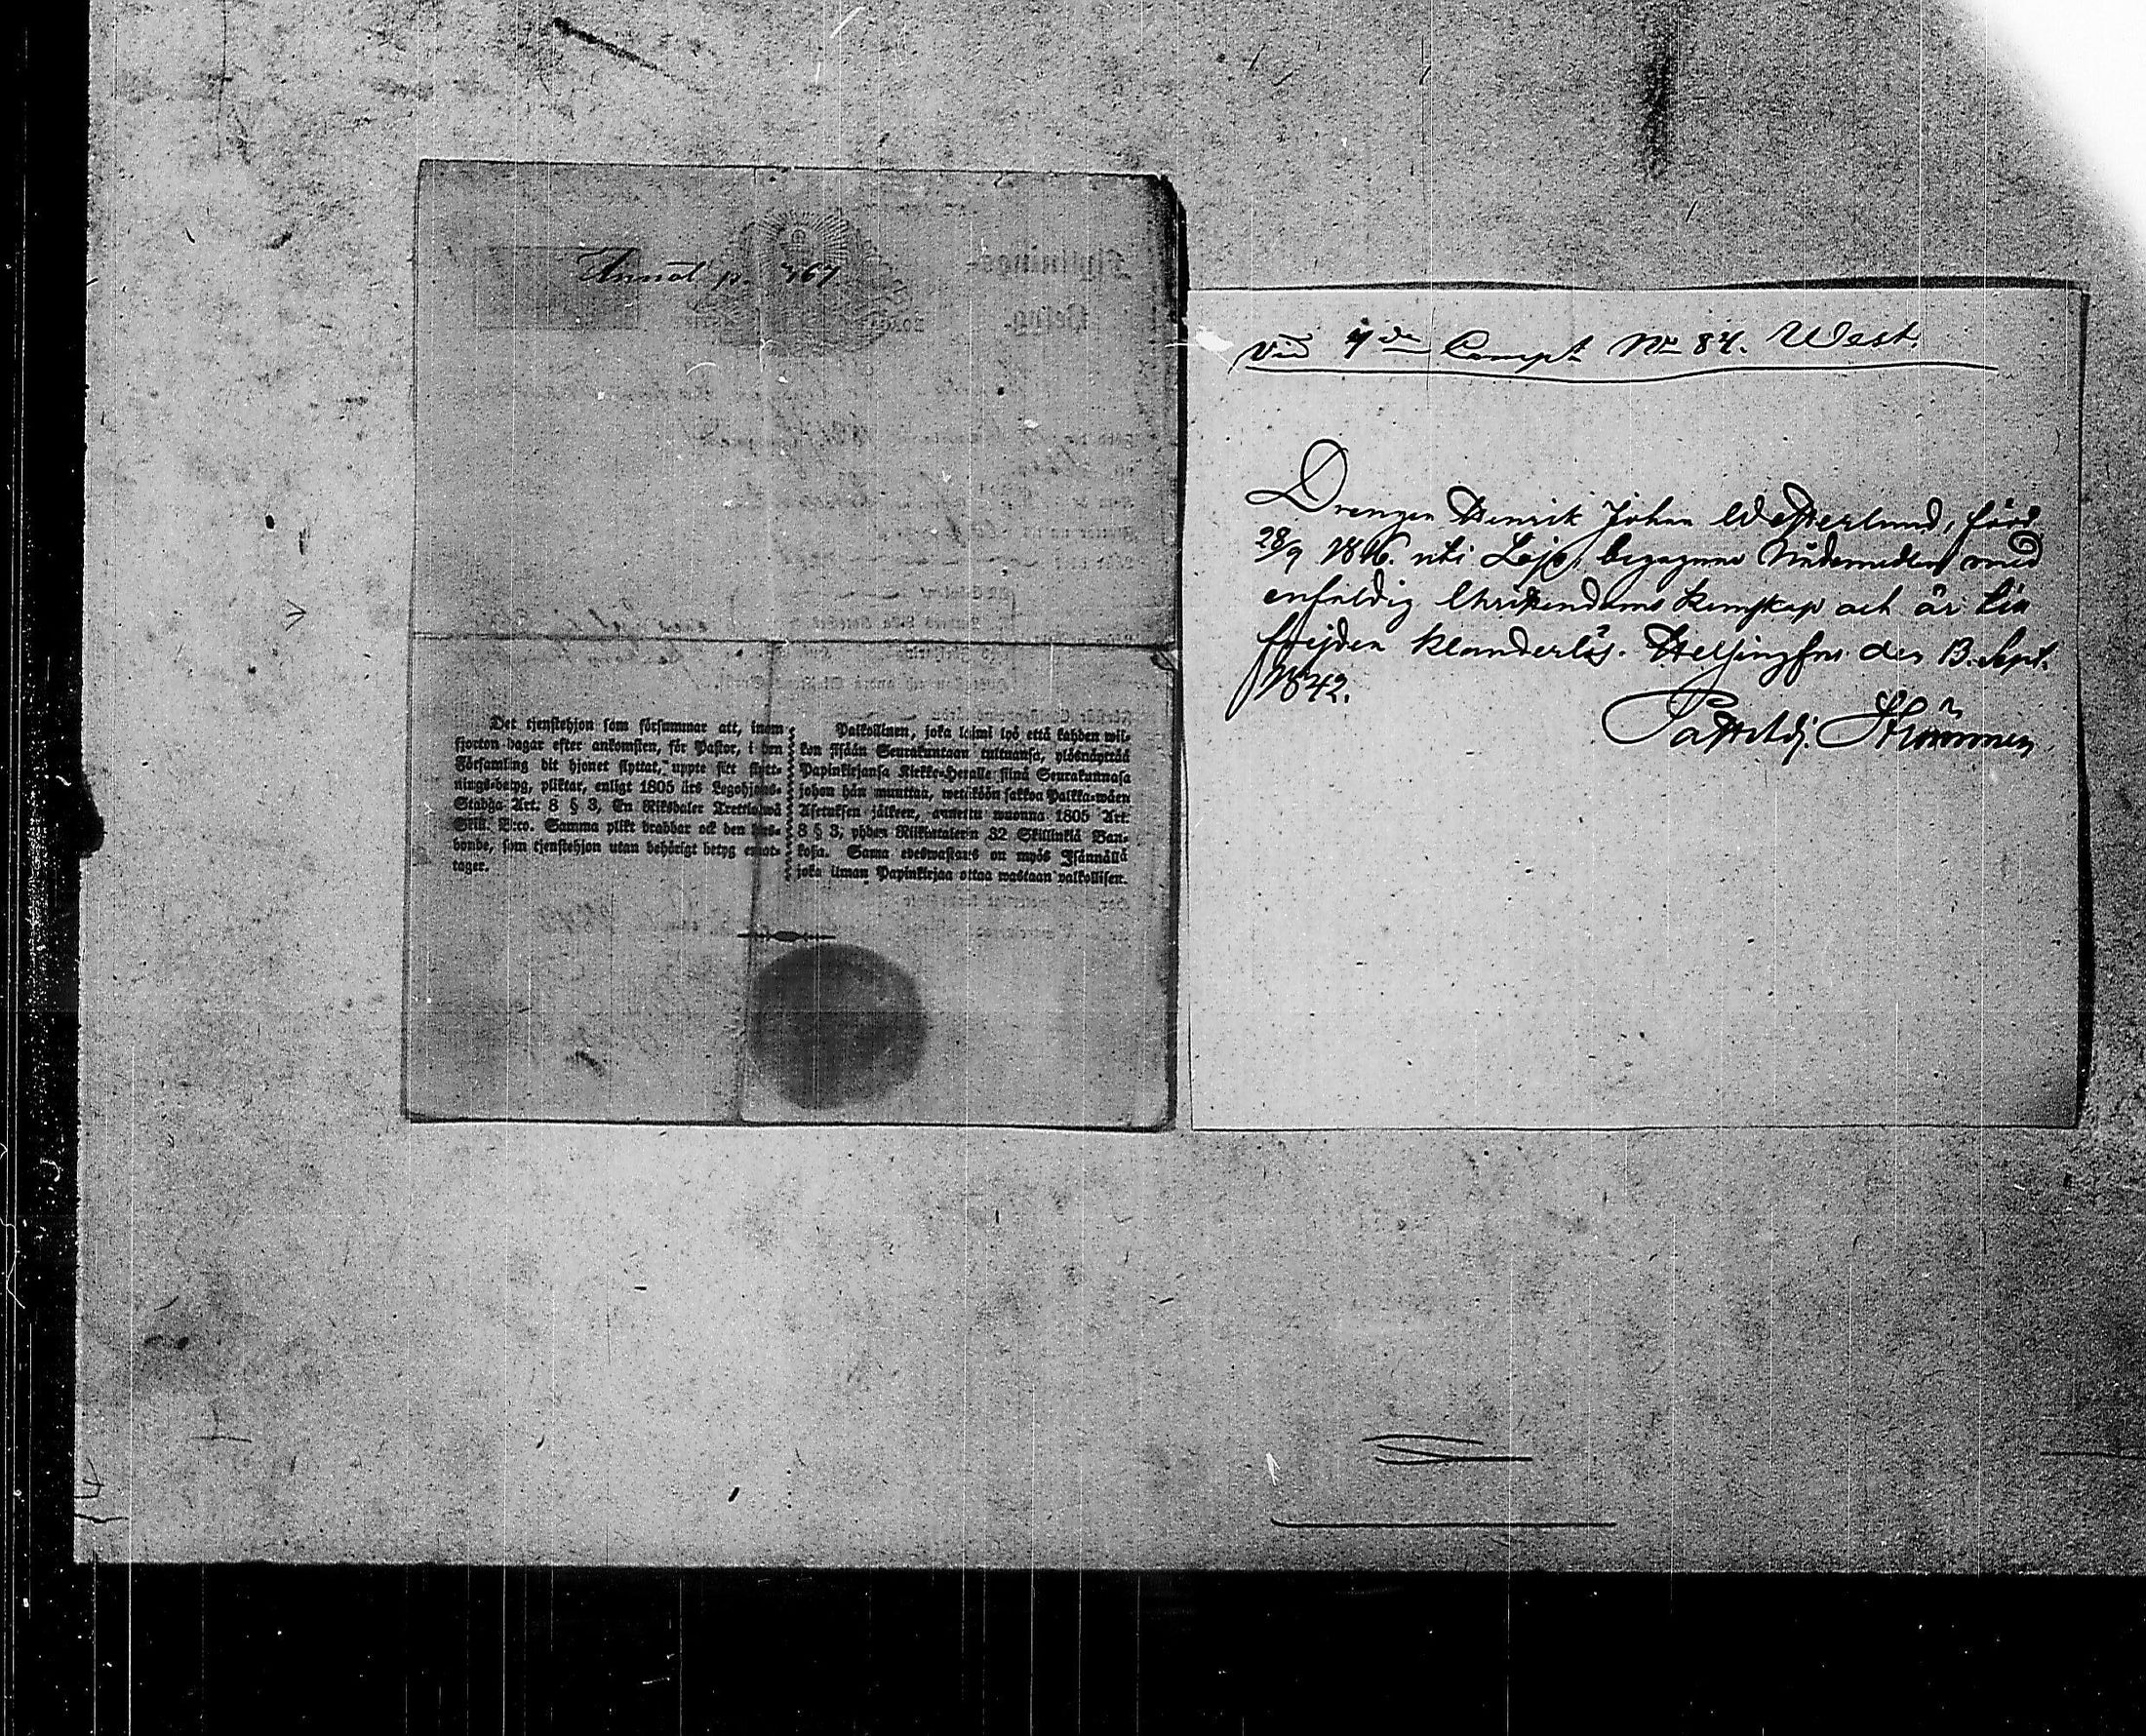 Anmäl p. 467.
Det tjenstehjon som försummar att, inom
fjorton dagar efter ankomsten, för Pastor, i den
Församling dit hjonet flyttat, uppte sitt flytt-
nings-betyg, pliktar, enligt 1805 års Legohjons-
Stadga Art. 8 § 3, En Riksdaler Trettiotwå
Skill. B:co. Samma plikt drabbar ock den hus-
bonde, som tjenstehjon utan behörigt betyg emot-
tager.
Palkollinen, joka laimi lyö että kahden wii-
kon sisään Seurakuntaan tultuansa, ylösnäyttää
Papinkirjansa Kirkko-Herralle siinä Seurakunnasa
johon hän muuttaa, wetäköön sakkoa Palkka-wäen
Asetuksen jälkeen, annettu wuonna 1805 Art.
8 § 3, yhden Riikintalerin 32 Skillinkiä Ban-
kosa. Sama edeswastaus on myös Isännällä
joka ilman Papinkirjaa ottaa wastaan palkollisen.
vid 4de Comp. No 84. West.
Drengen Henrik Johan Westerlund, född
28/9 1816. uti Lojo, begagnar Nådemedlen med
enfaldig Christendoms kunskap och är till
frejden klanderlös. Helsingfors den 13. Sept.
1842.